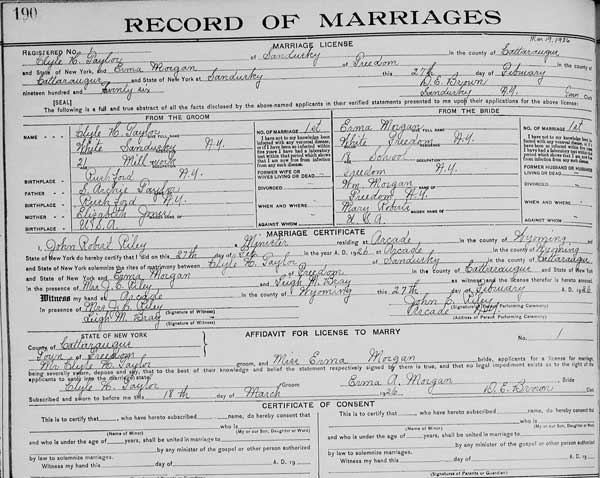 190
RECORD OF MARRIAGES
Mar 19, 1926
MARRIAGE LICENSE
REGISTERED No. 1
Clyle H. Taylor of Sandusky in the county of Cattaraugus
and State of New York, and Erma Morgan of Freedom in the county of
Cattaraugus and State of New York at Sandusky this 27th day of February
nineteen hundred and twenty six D. E. Brown
[SEAL] Sandusky N.Y. Town Clerk
The following is a full and true abstract of all the facts disclosed by the above-named applicants in their verified statements presented to me upon their applications for the above license:
FROM THE GROOM FROM THE BRIDE
NAME Clyle H. Taylor FULL NAME NO. OF MARRIAGE 1st Erma Morgan FULL NAME NO. OF MARRIAGE 1st
White Sandusky N.Y. White Freedom N.Y.
21 Mill work OCCUPATION 18 School OCCUPATION
BIRTHPLACE Rushford N.Y. FORMER WIFE OR WIVES LIVING OR DEAD Freedom N.Y. FORMER HUSBAND OR HUSBANDS LIVING OR DEAD
FATHER S. Archie Taylor DIVORCED Wm. Morgan DIVORCED
BIRTHPLACE Rushford N.Y. WHEN AND WHERE Freedom N.Y. WHEN AND WHERE
MOTHER Elizabeth Jones MAIDEN NAME OF Mary Roberts MAIDEN NAME OF
BIRTHPLACE U.S.A. AGAINST WHOM U.S.A. AGAINST WHOM
MARRIAGE CERTIFICATE
I, John Robert Piley a Minister residing at Arcade in the county of Wyoming and
State of New York do hereby certify that I did on this 27th day of Feb in the year A. D. 1926 at Arcade in the county of Wyoming
and State of New York solemnize the rites of matrimony between Clyle H. Taylor of Sandusky in the county of Cattaraugus
and State of New York and Erma Morgan of Freedom in the county of Cattaraugus and State of New York
in the presence of Mrs J. E. Piley and Leigh M. Bray as witness and the license therefor is hereto annexed.
Witness my hand at Arcade in the county of Wyoming this 27th day of February A. D. 1926
In presence of Mrs J. E. Piley (Signature of Witness) John E. Piley (Signature of Person Performing Ceremony)
Leigh M. Bray (Signature of Witness) Arcade N.Y. (Address of Person Performing Ceremony)
STATE OF NEW YORK AFFIDAVIT FOR LICENSE TO MARRY No. 1
County of Cattaraugus
Town of Freedom
Mr Clyle H. Taylor groom, and Miss Erma Morgan bride, applicants for a license for marriage,
being severally sworn, depose and say, that to the best of their knowledge and belief the statement respectively signed by them is true, and that no legal impediment exists as to the right of the
applicants to enter into the marriage state.
Clyle H. Taylor Groom Erma A. Morgan Bride
Subscribed and sworn to before me this 18th day of March 1926 D. E. Brown Clerk
CERTIFICATE OF CONSENT
This is to certify that who have hereto subscribed name, do hereby consent that This is to certify that who have hereto subscribed name, do hereby consent that
who is who is
(Name of Minor) (My or our Son, Daughter or Ward) (Name of Minor) (My or our Son, Daughter or Ward)
and who is under the age of years, shall be united in marriage to and who is under the age of years, shall be united in marriage to
by any minister of the gospel or other person authorized by any minister of the gospel or other person authorized
by law to solemnize marriages. by law to solemnize marriages.
Witness my hand this day of A. D. 19 Witness my hand this day of A. D. 19
(Signatures of Parents or Guardian)